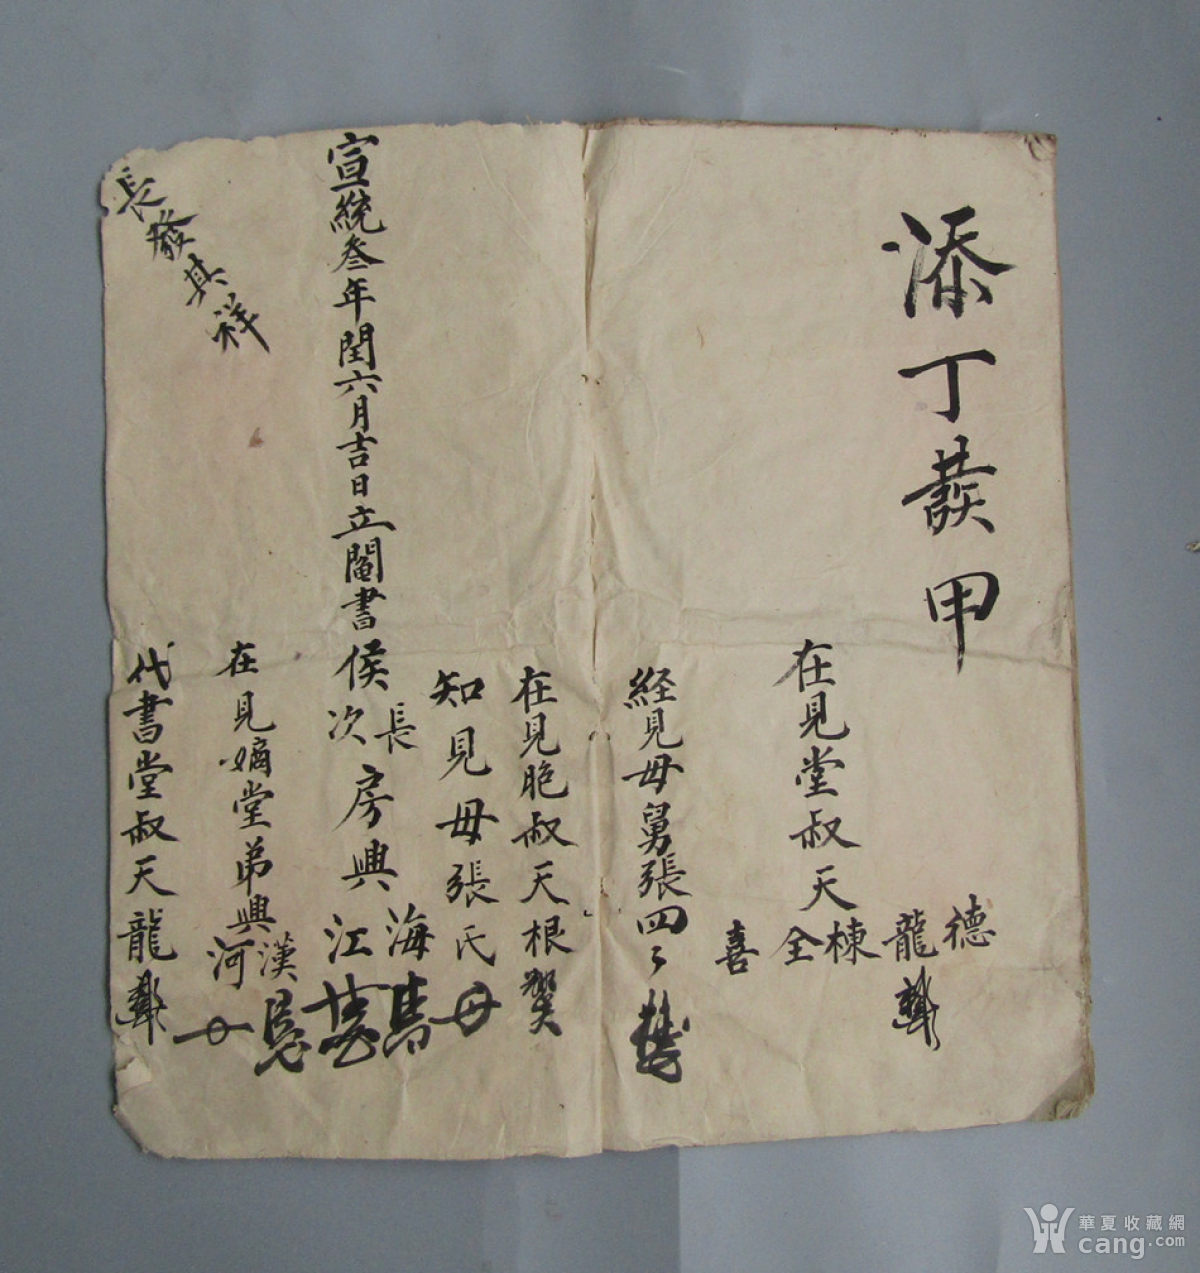 添丁發甲
在見堂叔天
德
龍
棟
全
喜
経見母舅張四々
在見胞叔天根
知見母張氏
宣統叁年閏六月吉日立鬮書侯長次房興海江
在見嫡堂弟興漢河
代書堂叔天龍
長發其祥
華夏收藏網
cang.com